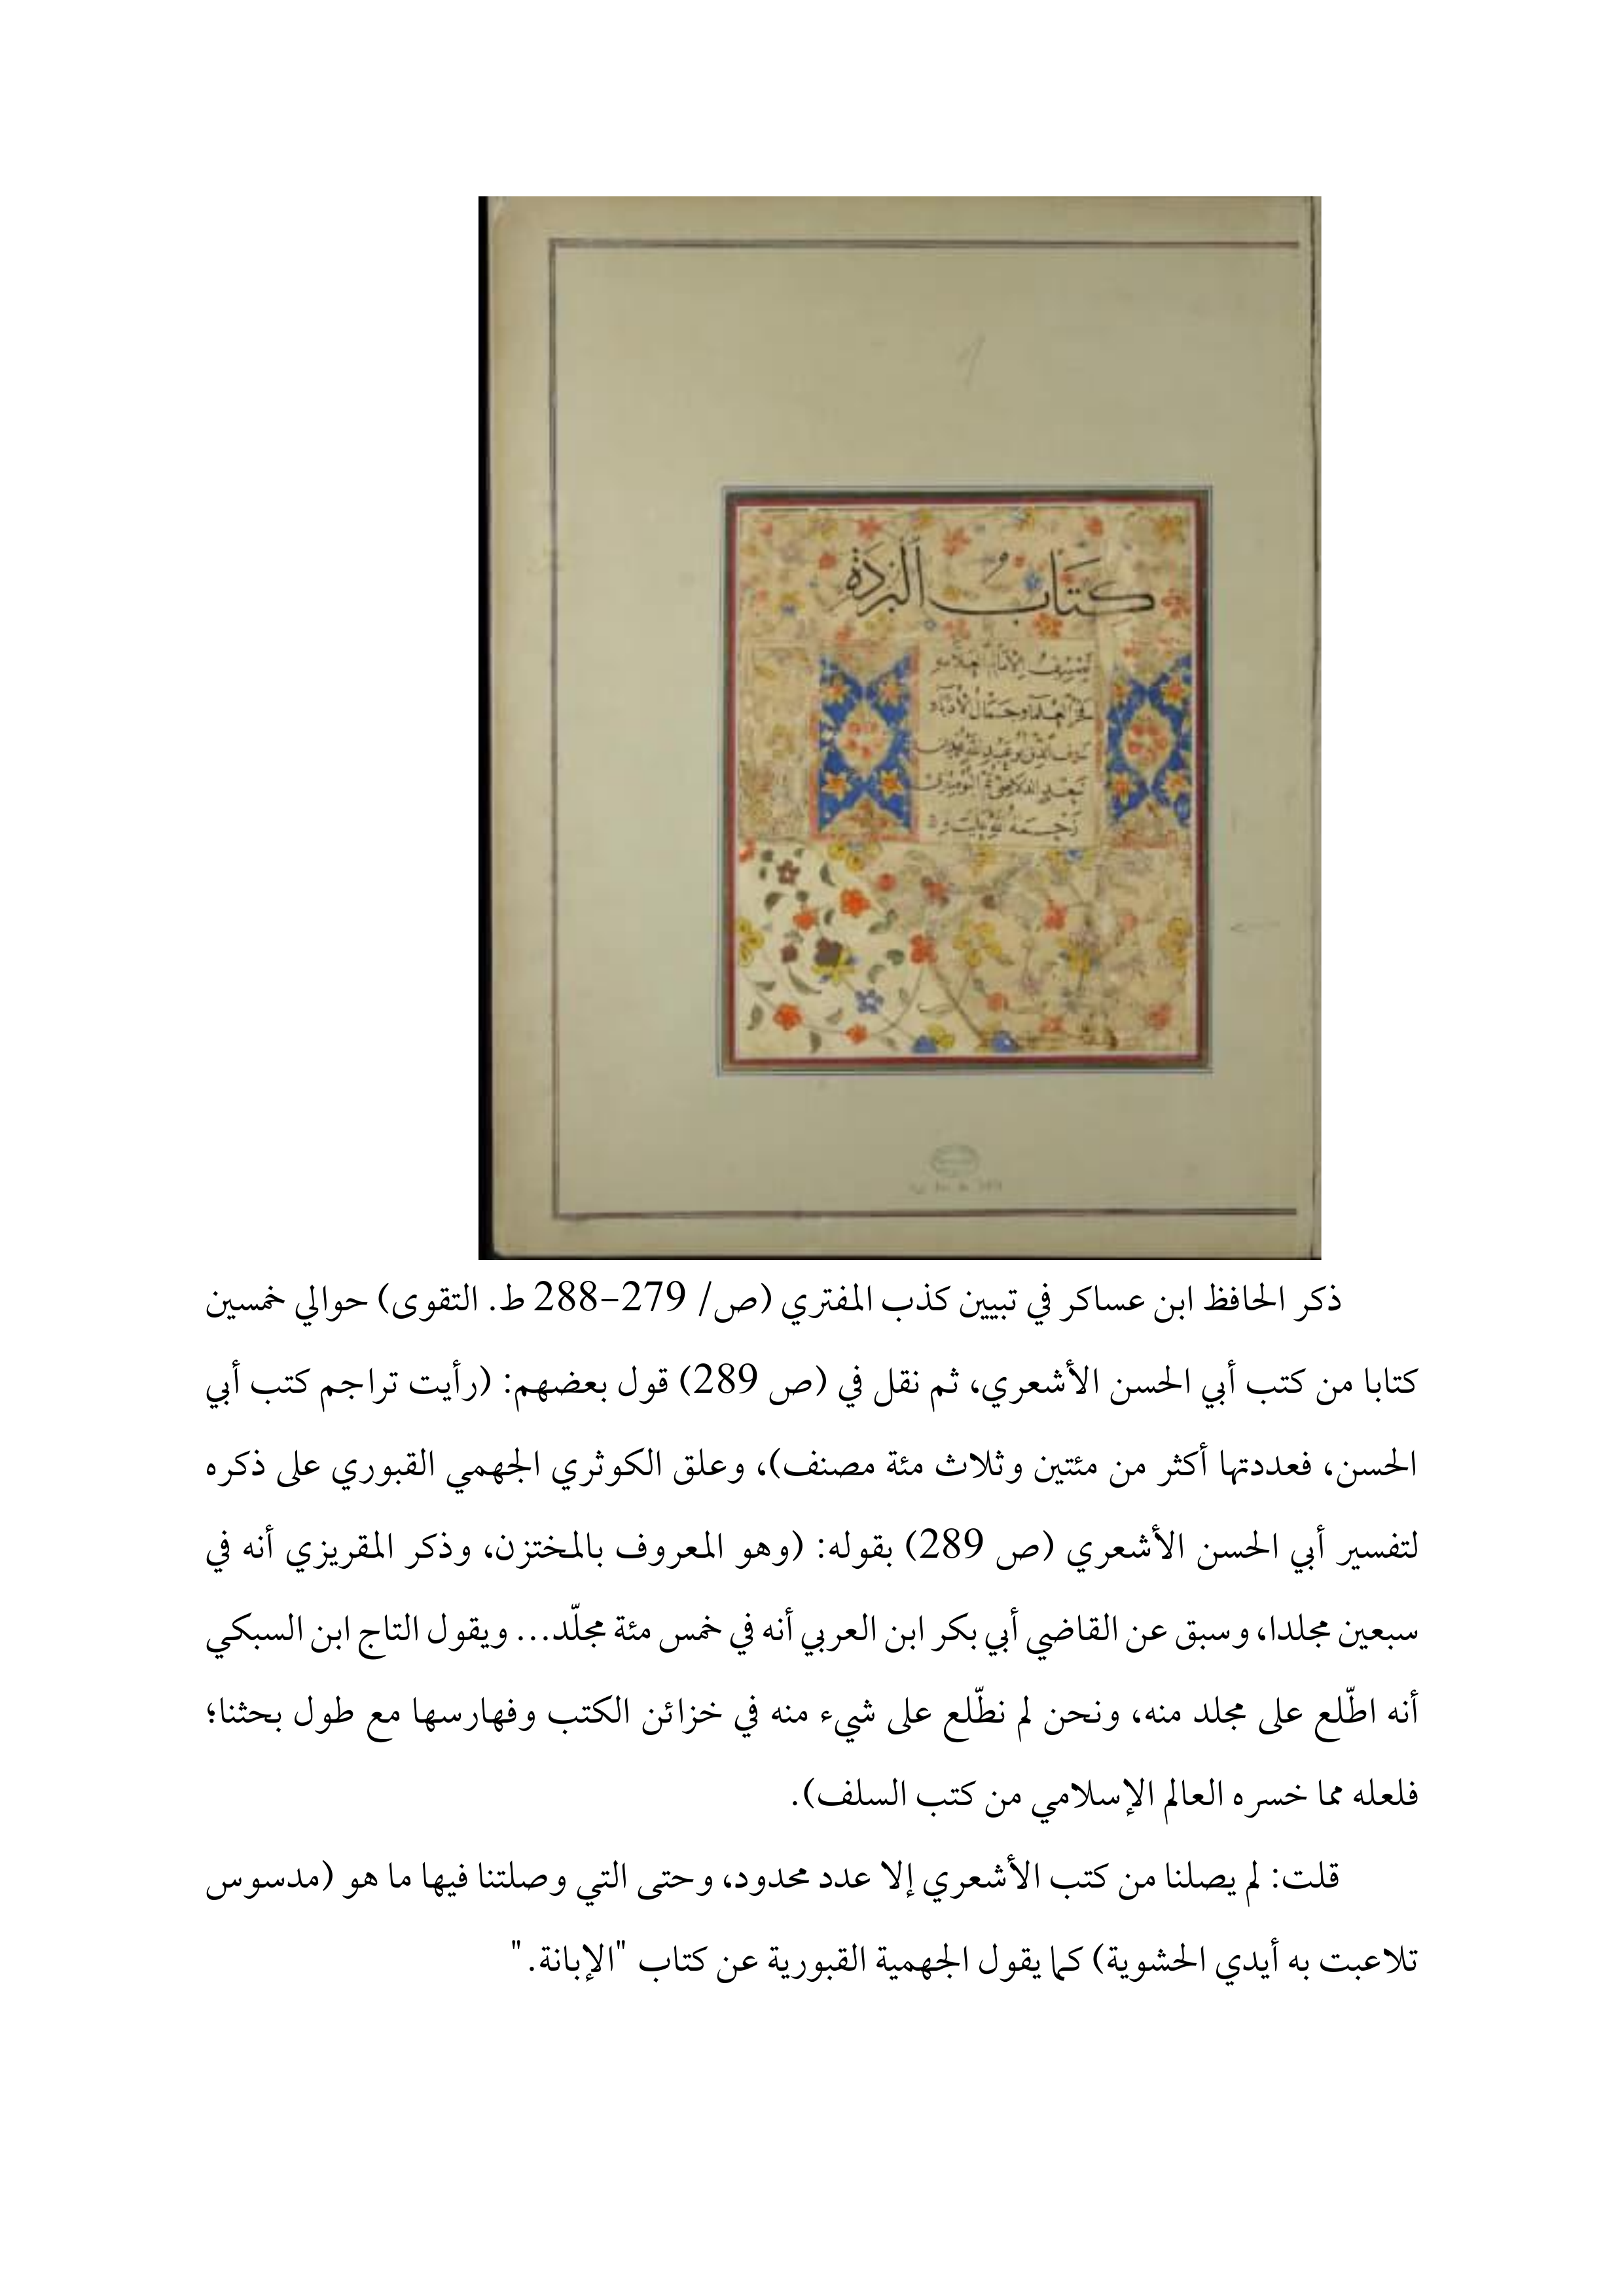 كتاب البردة
ذكر الحافظ ابن عساكر في تبيين كذب المفتري (ص/ 279-288 ط. التقوى) حوالي خمسين
كتابا من كتب أبي الحسن الأشعري، ثم نقل في (ص 289) قول بعضهم: (رأيت تراجم كتب أبي
الحسن، فعددتها أكثر من مئتين وثلاث مئة مصنف)، وعلق الكوثري الجهمي القبوري على ذكره
لتفسير أبي الحسن الأشعري (ص 289) بقوله: (وهو المعروف بالمختزن، وذكر المقريزي أنه في
سبعين مجلدا، وسبق عن القاضي أبي بكر ابن العربي أنه في خمس مئة مجلّد... ويقول التاج ابن السبكي
أنه اطّلع على مجلد منه، ونحن لم نطّلع على شيء منه في خزائن الكتب وفهارسها مع طول بحثنا؛
فلعله مما خسره العالم الإسلامي من كتب السلف).
قلت: لم يصلنا من كتب الأشعري إلا عدد محدود، وحتى التي وصلتنا فيها ما هو (مدسوس
تلاعبت به أيدي الحشوية) كما يقول الجهمية القبورية عن كتاب "الإبانة."